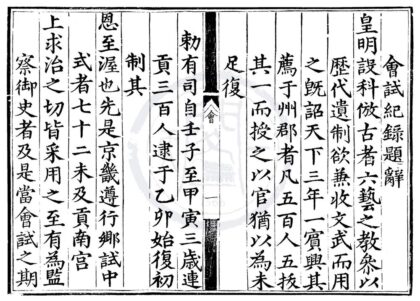 會試紀錄題辭
皇明設科倣古者六藝之教參以
歷代遺制欲兼收文武而用
之既詔天下三年一賓興其
薦于州郡者凡五百人五拔
其 而授之以官猶以為未
足復
會
勅有司自壬子至甲寅三歲連
貢三百人逮于乙卯始復初
制其
恩至渥也先是京畿遵行鄉試中
式者七十二未及貢南宮
上求治之切皆采用之至有為監
察御史者及是當會試之期